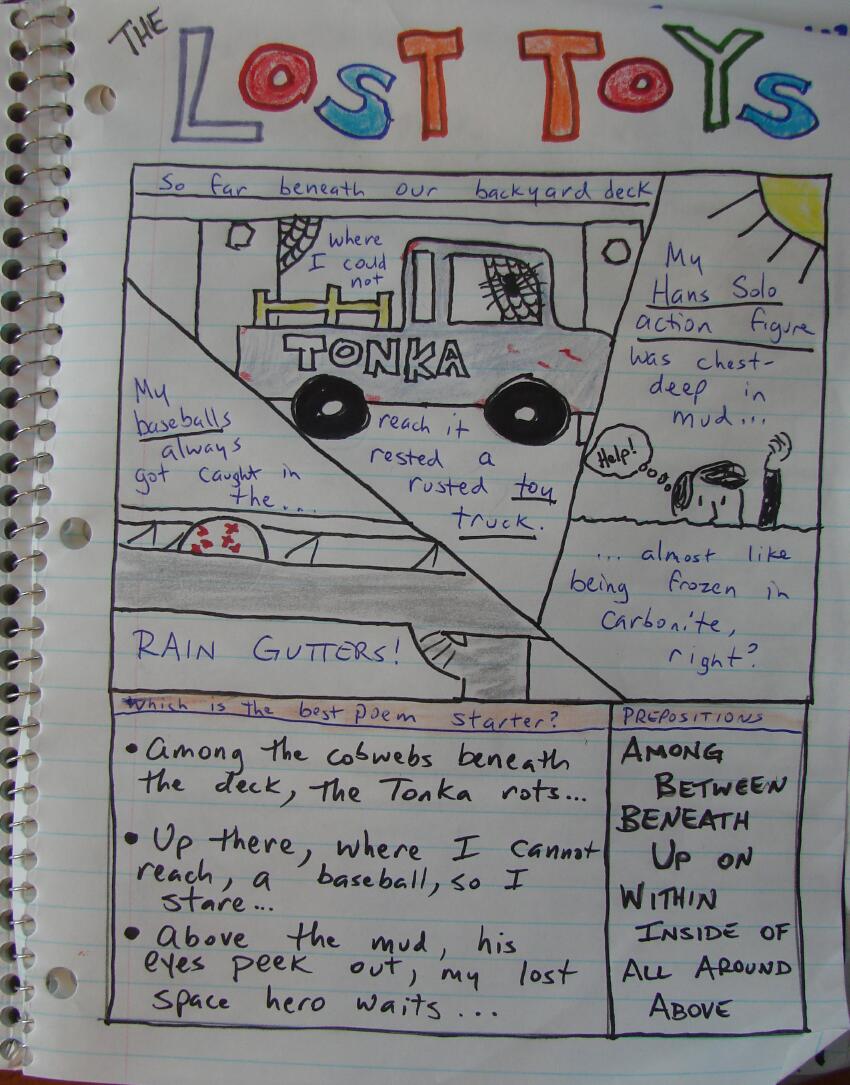 THE
LOST TOYS
So far beneath our backyard deck
where
I could
not
TONKA
reach it
rested a
rusted toy
truck.
My
baseballs
always
got caught in
the...
RAIN GUTTERS!
My
Hans Solo
action figure
was chest-
deep in
mud...
Help!
... almost like
being frozen in
Carbonite,
right?
Which is the best poem starter?
• Among the cobwebs beneath
the deck, the Tonka rots...
• Up there, where I cannot
reach, a baseball, so I
stare...
• Above the mud, his
eyes peek out, my lost
space hero waits...
PREPOSITIONS
AMONG
BETWEEN
BENEATH
UP ON
WITHIN
INSIDE OF
ALL AROUND
ABOVE